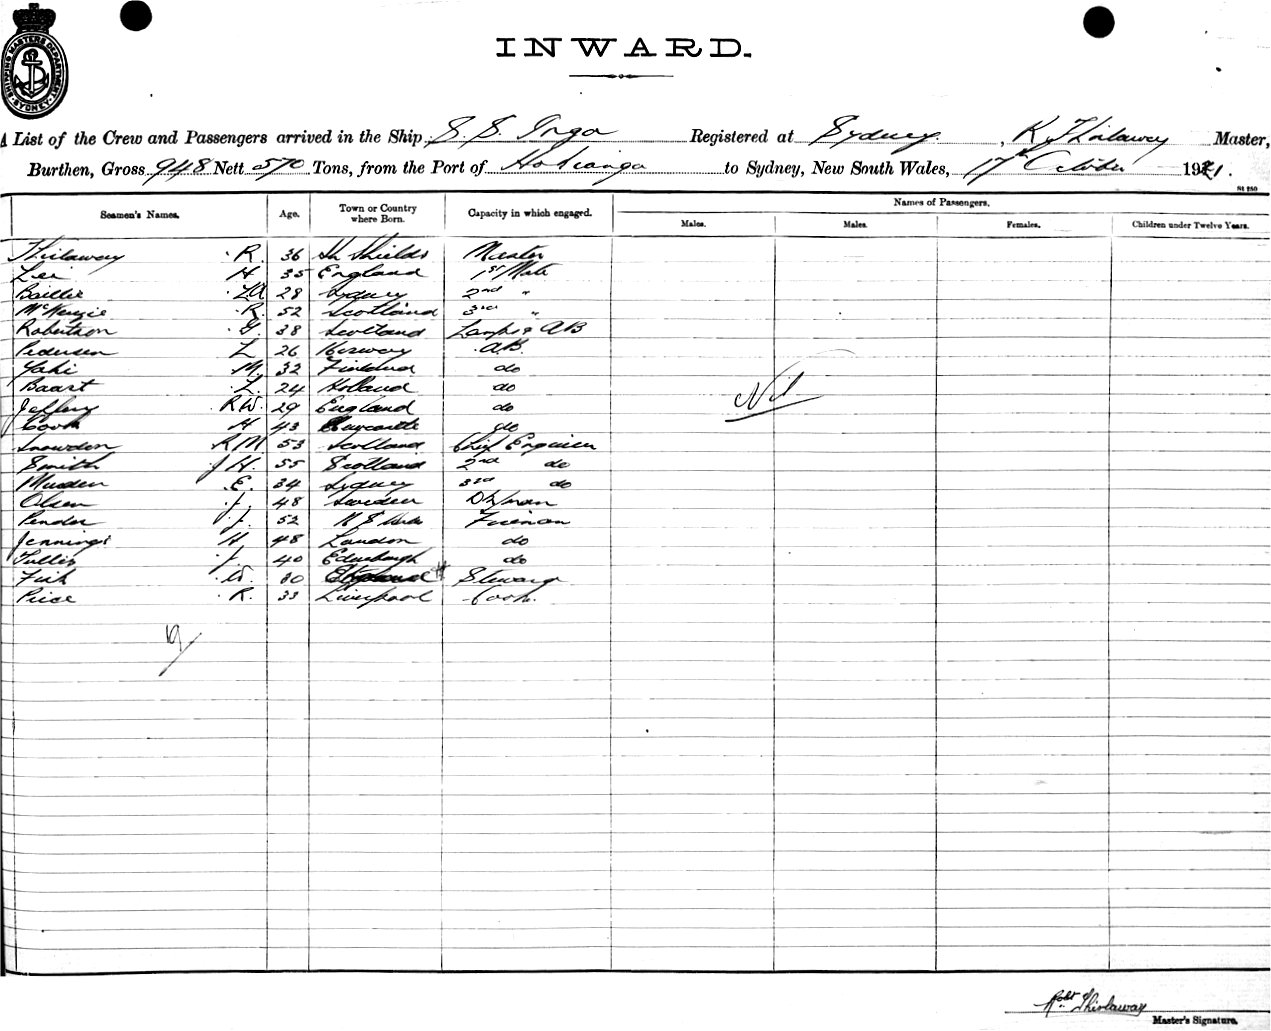 SHIPPING MASTERS DEPARTMENT SYDNEY
INWARD.
A List of the Crew and Passengers arrived in the Ship S.S. Inga Registered at Sydney, R Thirlaway Master,
Burthen, Gross 948 Nett 570 Tons, from the Port of Hokianga to Sydney, New South Wales, 17th October 1921.
Seamen's Names. Age. Town or Country where Born. Capacity in which engaged. Names of Passengers.
Males. Males. Females. Children under Twelve Years.
Thirlaway R. 36 Sh Shields Master
Lei H 35 England 1st Mate
Baillie 28 Sydney 2nd "
McKenzie R. 52 Scotland 3rd "
Robertson G. 38 Scotland Lamps & AB
Pedersen L 26 Norway A.B.
M. 32 Finland do
Baart L. 24 Holland do
Jeffery R W. 29 England do
Cook H 43 Newcastle do
Snowdon R M 53 Scotland Chief Engineer
Smith J H. 55 Scotland 2nd do
E. 34 Sydney 3rd do
Olsen J. 48 Sweden
Pender J. 52 Fireman
Jennings H 48 London do
Tullis J. 40 Edinburgh do
Fish W. 30 England Steward
Price R. 33 Liverpool Cook.
Nil
19
Robt Thirlaway
Master's Signature.